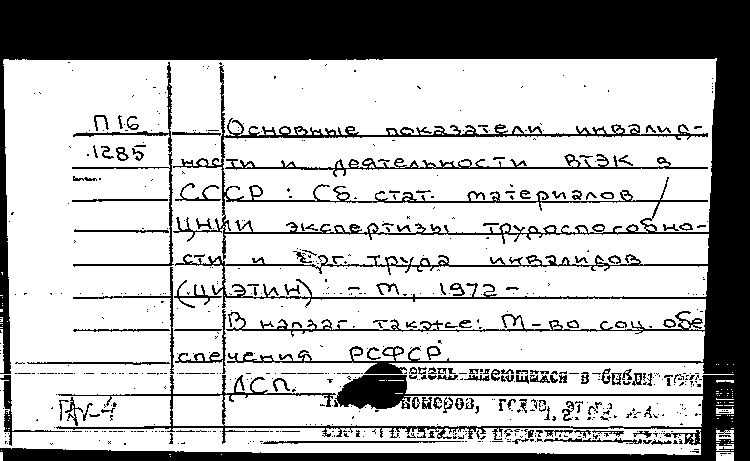 П16
1285
Основные показатели инвалид-
ности и деятельности ВТЭК в
СССР : Сб. стат. материалов /
ЦНИИ экспертизы трудоспособно-
сти и орг. труда инвалидов
(ЦИЭТИН) - М., 1972 -
В надзаг. также: М-во соц. обе
спечения РСФСР.
ДСП.
речень имеющихся в библи
номеров, годов,